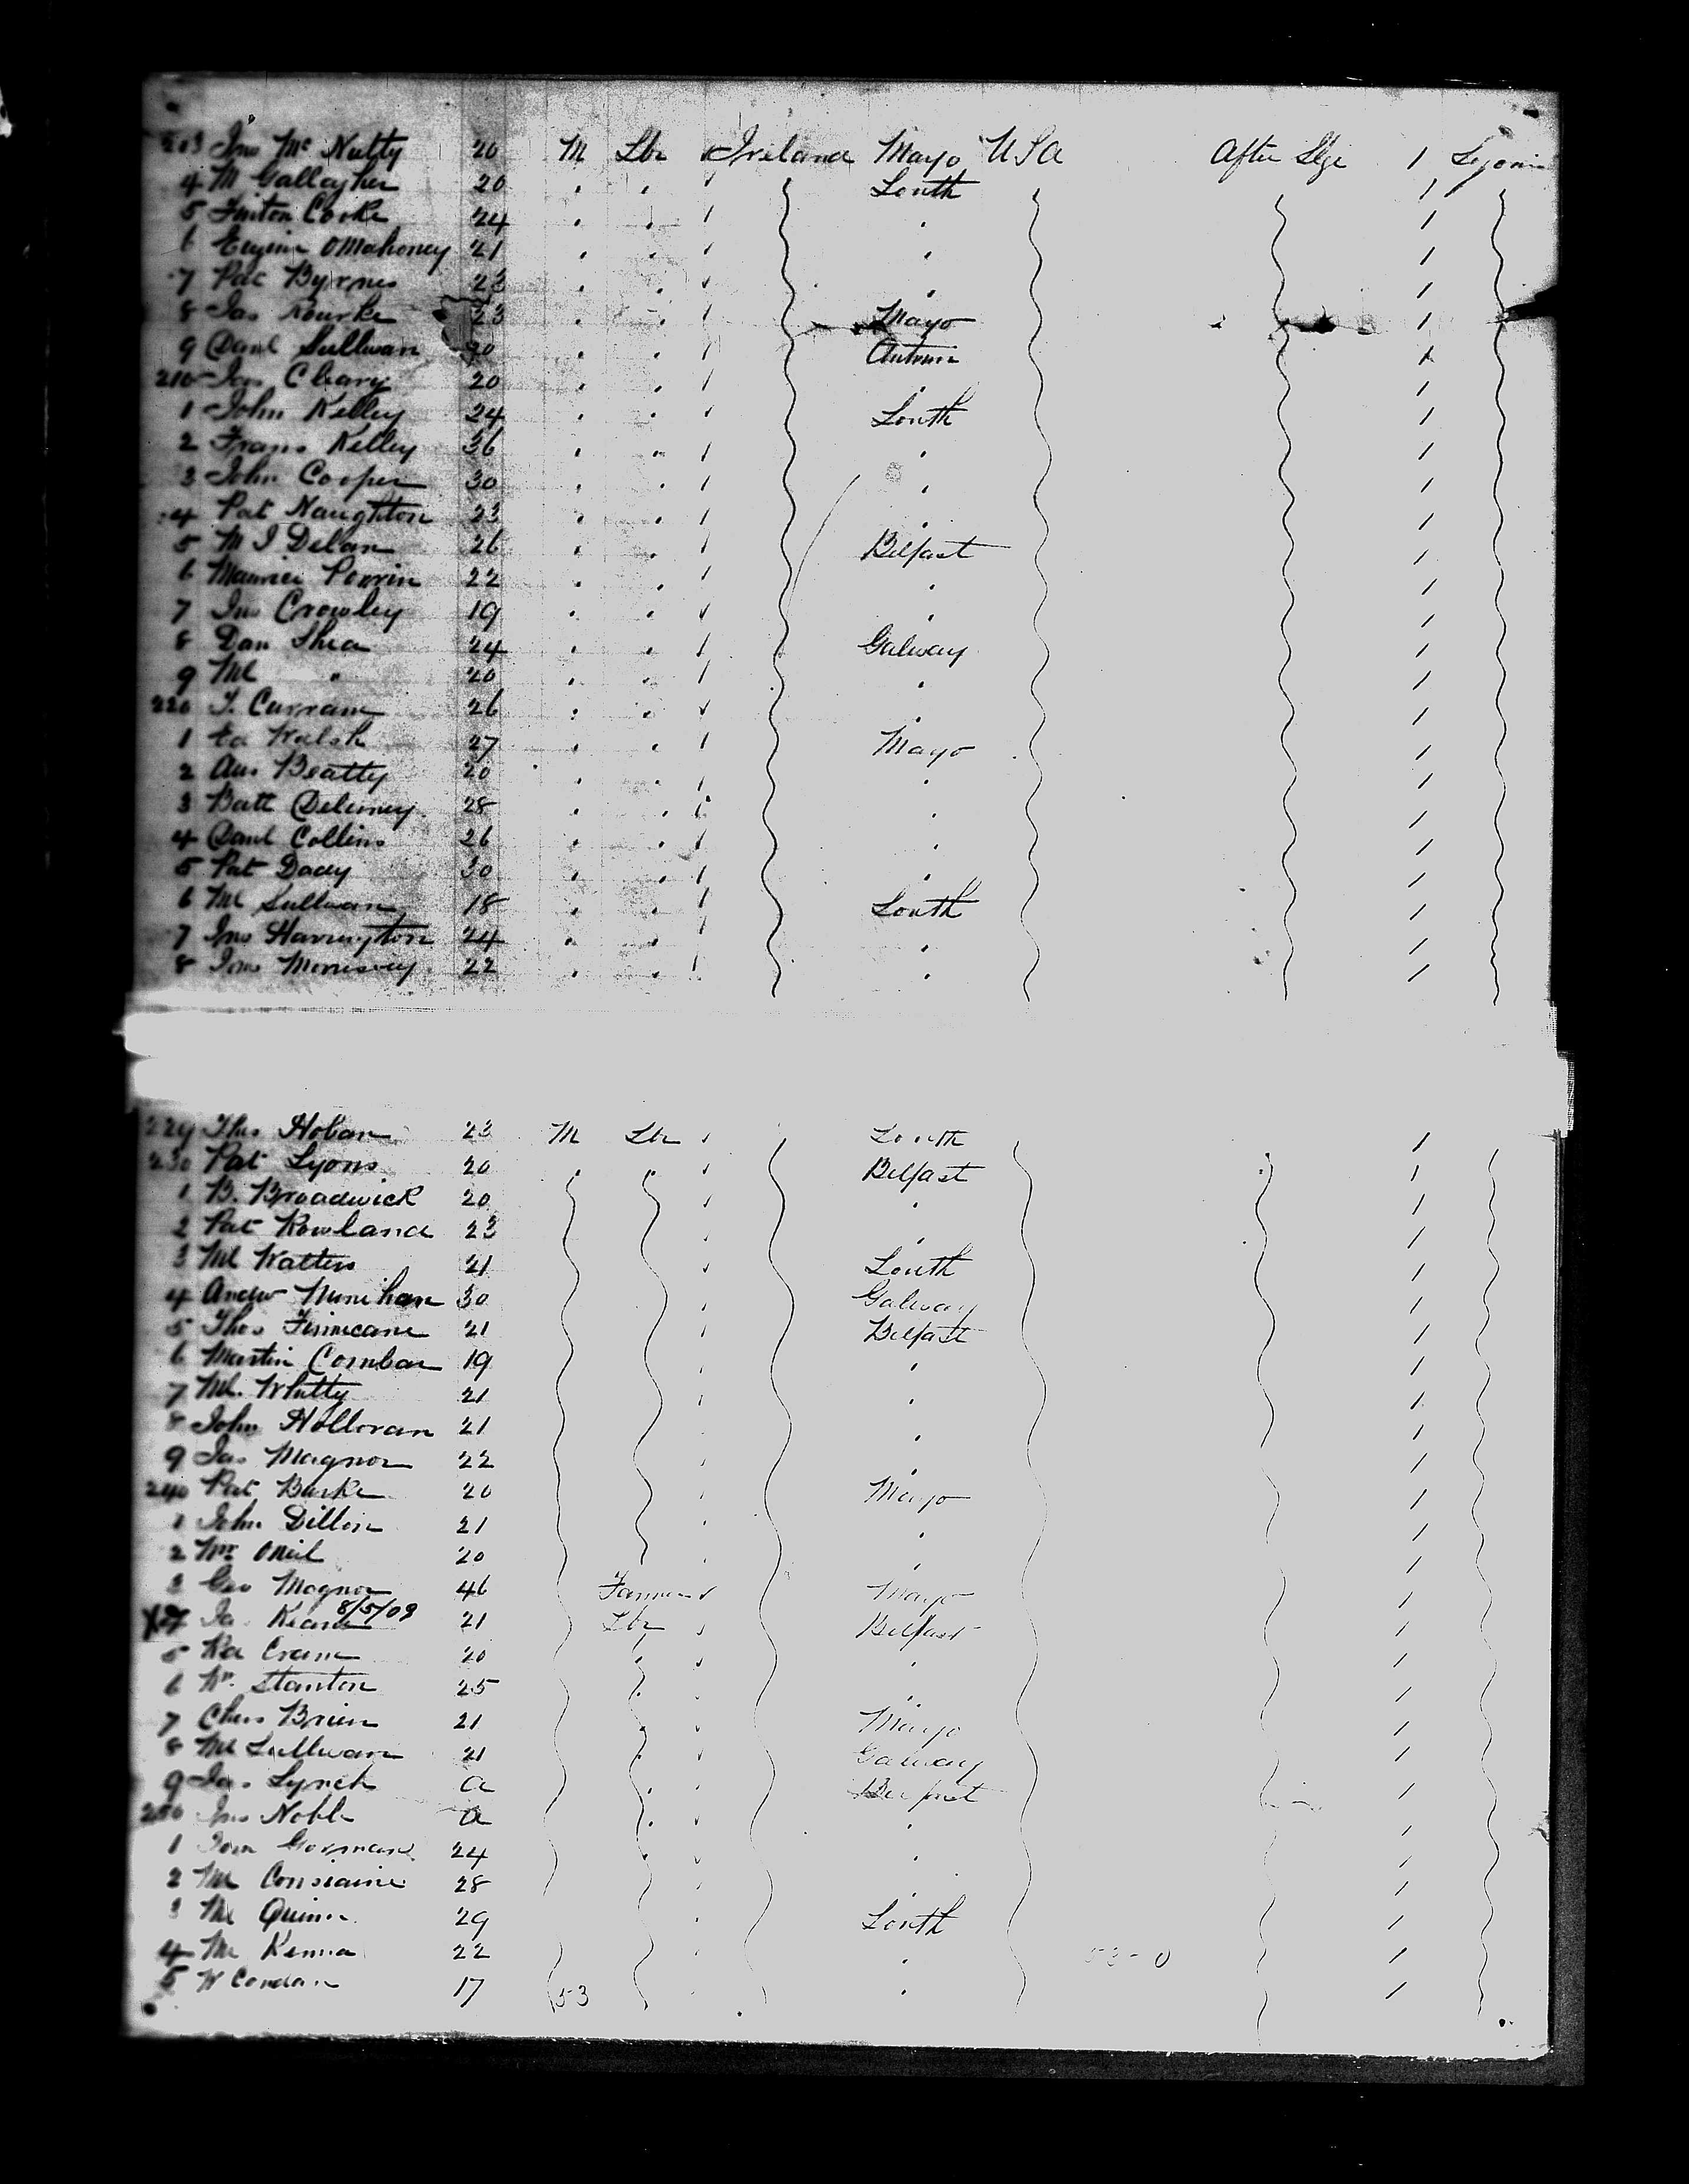 203 Jno Mc Nulty 20 M Lbr Ireland Mayo USA After Stge 1
4 M Gallagher 20 Louth
5 Finton Cooke 24
6 Eugene OMahoney 21
7 Pat Byrnes 23
8 Jas Rourke 23 Mayo
9 Danl Sullivan 20
210 Jas Cleary 20
1 John Kelley 24 Louth
2 Frans Kelley 36
3 John Cooper 30
4 Pat Naughton 23
5 M J Delan 26 Belfast
6 Maurice 22
7 Jno Crowley 19
8 Dan Shea 24 Galway
9 Ml " 20
220 T. Curran 26
1 Ed Walsh 27 Mayo
2 Beatty 20
3 Batt Delaney 28
4 Danl Collins 26
5 Pat Dady 30
6 Ml Sullivan 18 Louth
7 Jno Harrington 24
8 Morrissey 22
229 Thos Hoban 23 M Lbr Louth
230 Pat Lyons 20 Belfast
1 B. Broadwick 20
2 Pat Rowland 23
3 Ml Watters 21 Louth
4 Andw Minihan 30 Galway
5 Thos Finnecane 21 Belfast
6 Martin 19
7 Ml. Whitty 21
8 John Holloran 21
9 Jas Magnor 22
240 Pat Burke 20 Mayo
1 John Dillon 21
2 Wm ONeil 20
3 Geo Magnor 46 Farmer Mayo
4 Ja. Keane 8/5/09 21 Lbr Belfast
5 20
6 Wm. Stanton 25
7 Chas Brien 21 Mayo
8 Ml Sullivan 21 Galway
9 Jas Lynch a Belfast
250 Jno Noble a
1 Tom Gorman 24
2 Ml Considine 28
3 Ml Quinn 29 Louth
4 M Kenna 22 53-0
5 W Condon 17 53